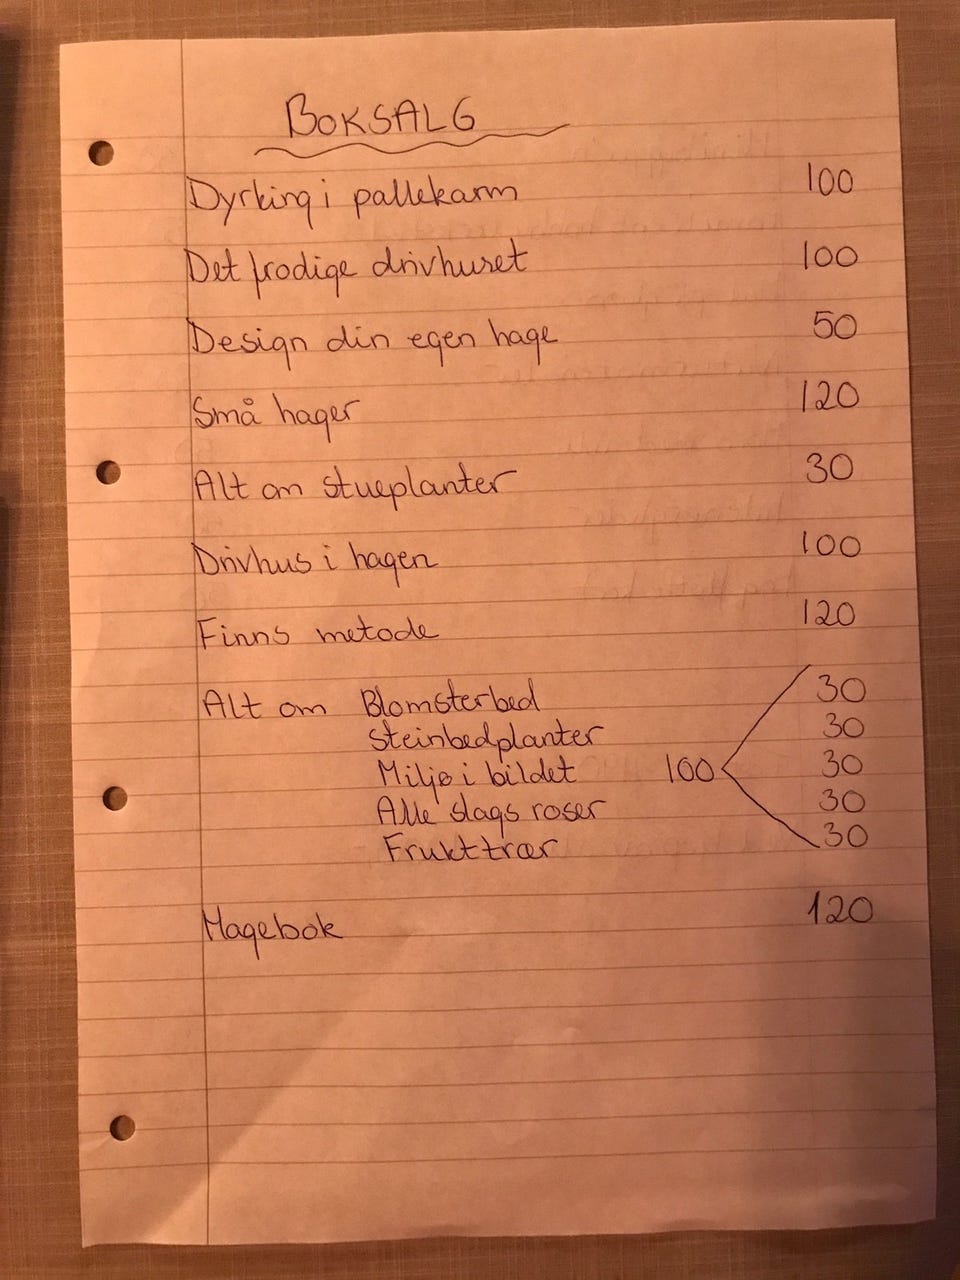 BOKSALG
Dyrking i pallekarm 100
Det frodige drivhuset 100
Design din egen hage 50
Små hager 120
Alt om stueplanter 30
Drivhus i hagen 100
Finns metode 120
Alt om Blomsterbed 30
Steinbedplanter 30
Miljø i bildet 100 30
Alle slags roser 30
Frukttrær 30
Hagebok 120